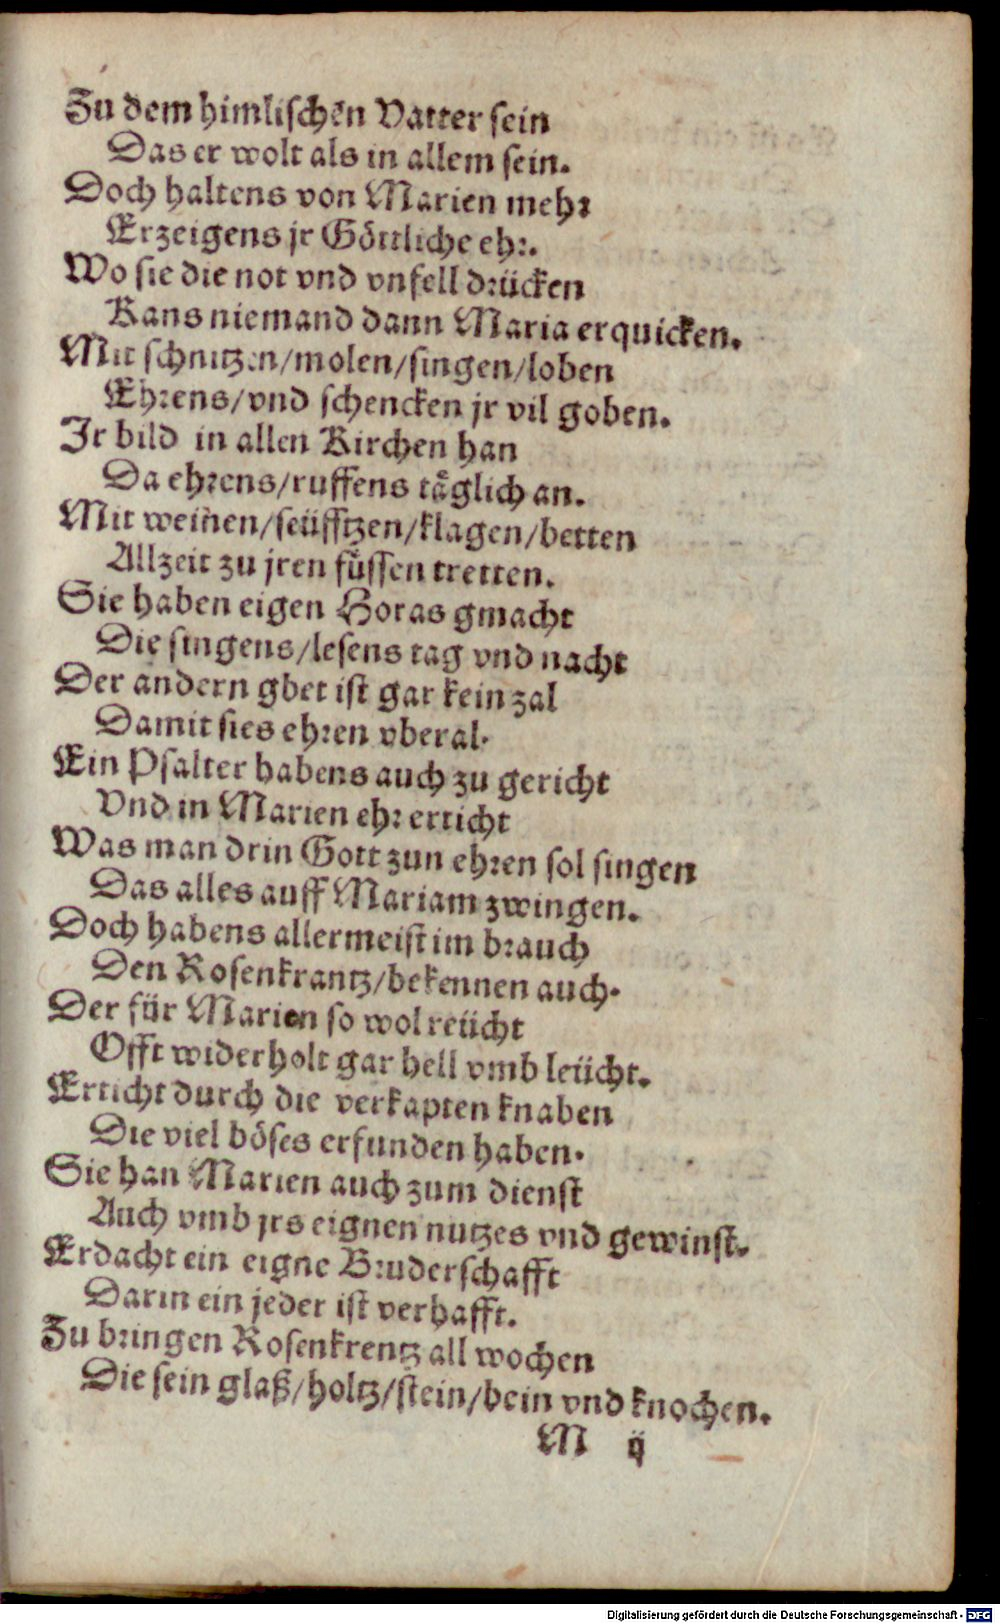 Zu dem himlischen Vatter sein
Das er wolt als in allem sein.
Doch haltens von Marien mehr
Erzeigens jr Göttliche ehr.
Wo sie die not vnd vnfell drücken
Kans niemand dann Maria erquicken.
Mit schnitzen/molen/singen/loben
Ehrens/vnd schencken jr vil goben.
Jr bild in allen Kirchen han
Da ehrens/ruffens täglich an.
Mit weinen/seüfftzen/klagen/betten
Allzeit zu jren füssen tretten.
Sie haben eigen Horas gmacht
Die singens/lesens tag vnd nacht
Der andern gbet ist gar kein zal
Damit sies ehren vberal.
Ein Psalter habens auch zu gericht
Vnd in Marien ehr erticht
Was man drin Gott zun ehren sol singen
Das alles auff Mariam zwingen.
Doch habens allermeist im brauch
Den Rosenkrantz/bekennen auch.
Der für Marien so wol reücht
Offt widerholt gar hell vmb leücht.
Erticht durch die verkapten knaben
Die viel böses erfunden haben.
Sie han Marien auch zum dienst
Auch vmb jrs eignen nutzes vnd gewinst.
Erdacht ein eigne Bruderschafft
Darin ein jeder ist verhafft.
Zu bringen Rosenkrentz all wochen
Die sein glaß/holtz/stein/bein vnd knochen.
M ij
Digitalisierung gefördert durch die Deutsche Forschungsgemeinschaft - DFG